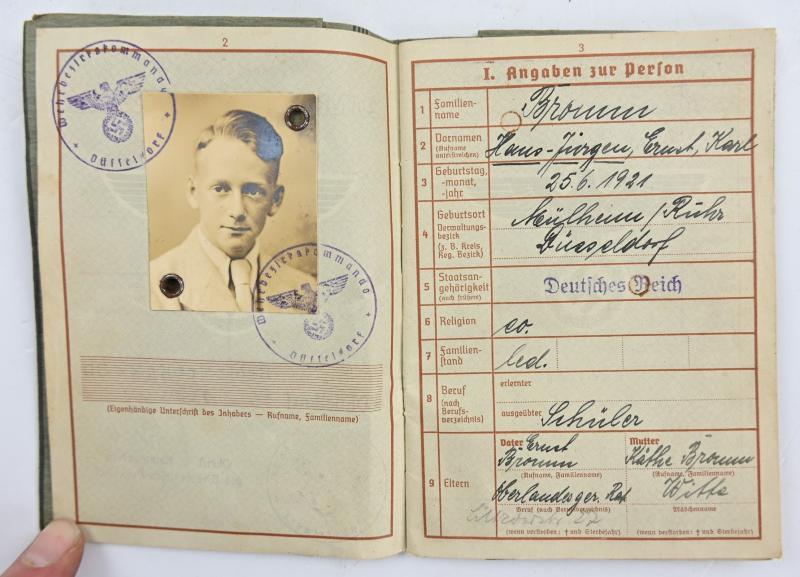 2
Wehrbezirkskommando
Düsseldorf
Wehrbezirkskommando
Düsseldorf
(Eigenhändige Unterschrift des Inhabers — Rufname, Familienname)
3
I. Angaben zur Person
1 Familien-
name
Bromm
2 Vornamen
(Rufname
unterstreichen)
Hans-Jürgen, Ernst, Karl
3 Geburtstag,
-monat,
-jahr
25.6.1921
4 Geburtsort
Verwaltungs-
bezirk
(z. B. Kreis,
Reg. Bezirk)
Mülheim/Ruhr
Düsseldorf
5 Staatsan-
gehörigkeit
(auch frühere)
Deutsches Reich
6 Religion
ev.
7 Familien-
stand
led.
8 Beruf
(nach
Berufs-
verzeichnis)
erlernter
ausgeübter
Schüler
9 Eltern
Vater Ernst
Bromm
(Rufname, Familienname)
Oberlandesger. Rat
Beruf (nach Berufsverzeichnis)
(wenn verstorben: † und Sterbejahr)
Mutter
Käthe Bromm
(Rufname, Familienname)
Witte
Mädchenname
(wenn verstorben: † und Sterbejahr)